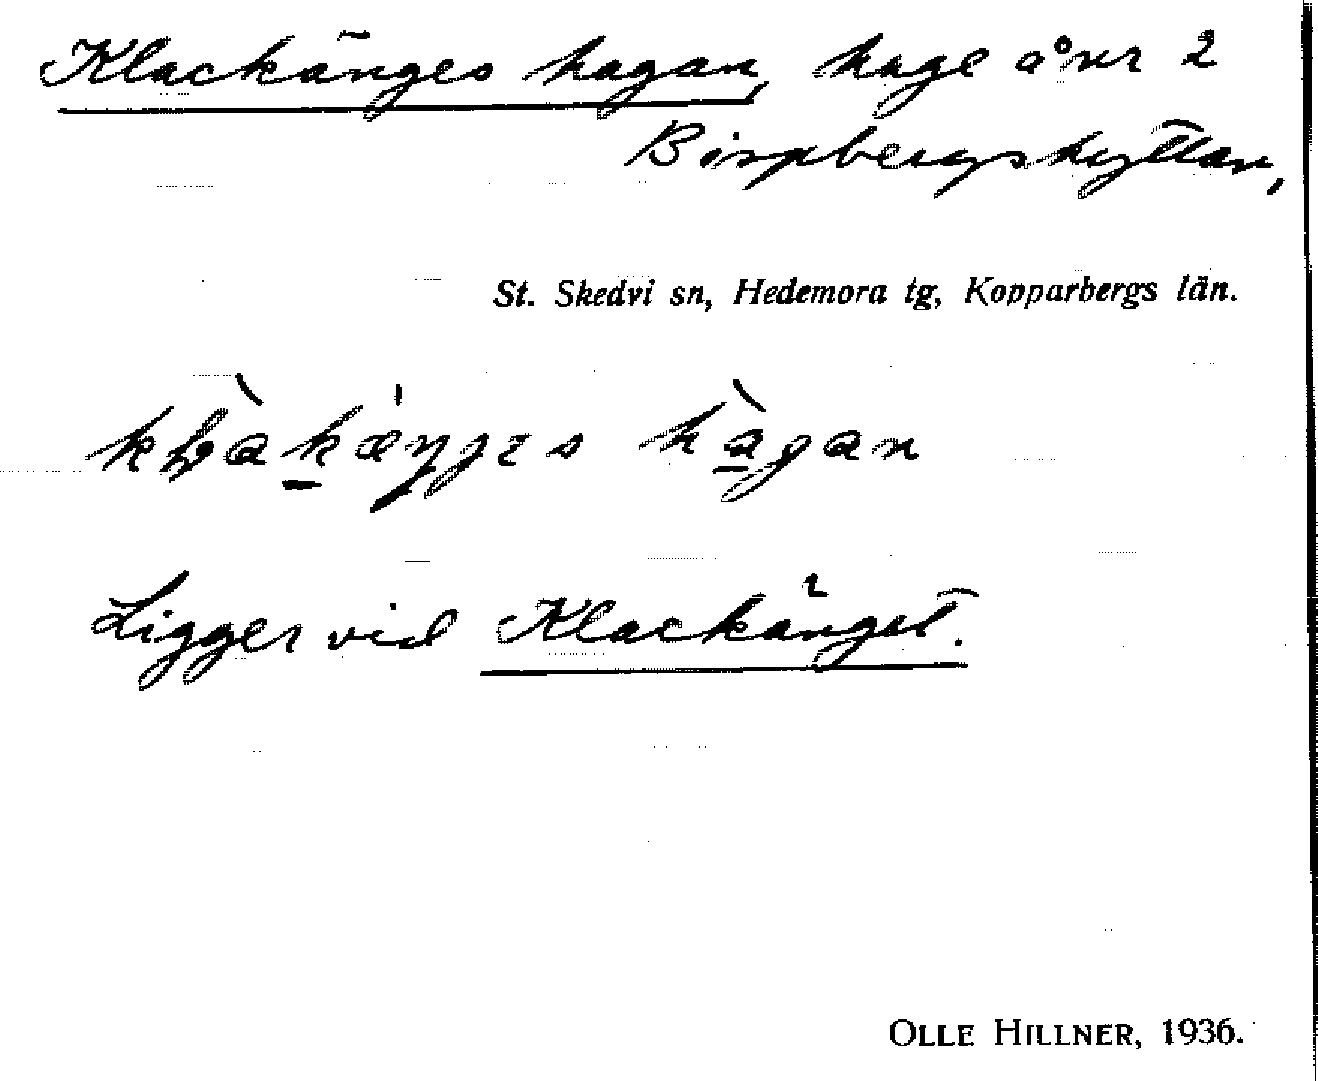 Klackänges hagan, hage å nr 2
Bispbergshyttan,
St. Skedvi sn, Hedemora tg, Kopparbergs län.
hàgan
Ligger vid Klackänget.
OLLE HILLNER, 1936.